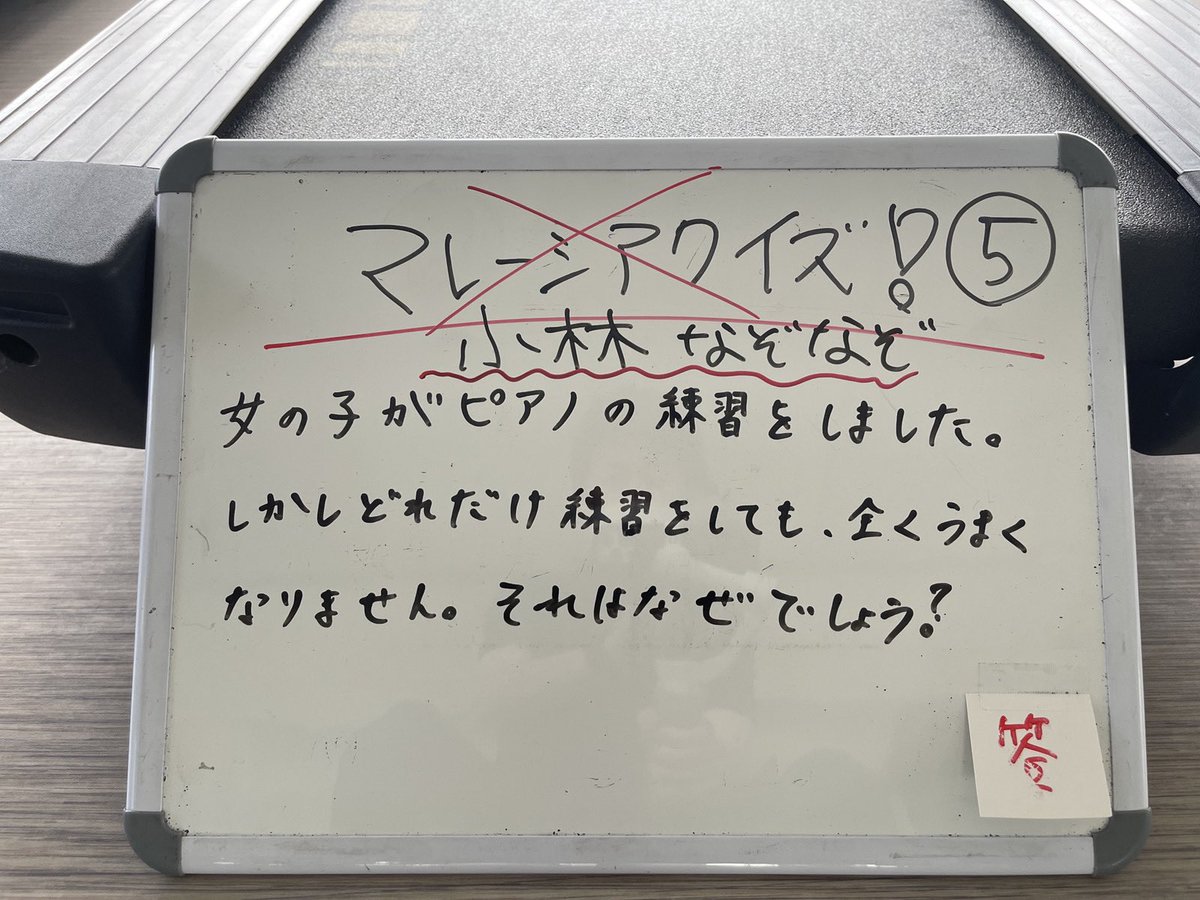 マレーシアクイズ! ⑤
小林 なぞなぞ
女の子がピアノの練習をしました。
しかしどれだけ練習をしても、全くうまく
なりません。それはなぜでしょう?
答